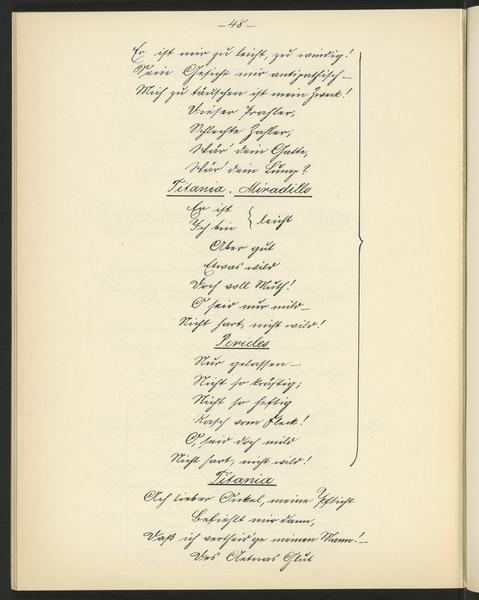 — 48 —
Er ist mir zu leicht, zu windig!
Sein Gesicht mir antipathisch —
Mich zu täuschen ist mein Zweck!
Dieser Prahler,
Schlechte Zahler,
Wär' dein Gatte,
Wär' dein Lump?
Titania. Miradillo
Er ist
Ich bin } leicht
Aber gut
Etwas wild
Doch voll Muth!
O seid nur mild —
Nicht hart, nicht wild!
Pericles
Nur gelassen —
Nicht so kräftig;
Nicht so heftig
Rasch vom Fleck!
O, seid doch mild
Nicht hart, nicht wild!
Titania
Ach lieber Onkel, meine Pflicht
Befiehlt mir dann,
Daß ich vertheid'ge meinen Mann! —
Des Aetnas Glut